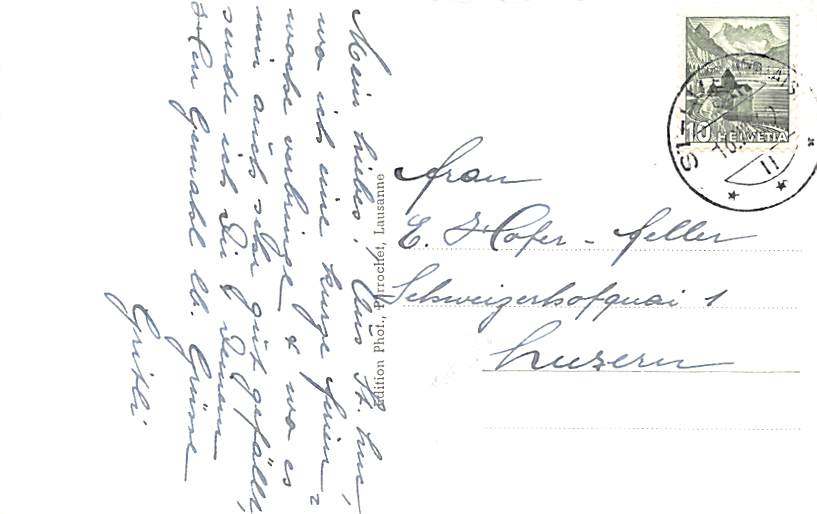 Mein Liebes! Aus St. Luc,
wo ich eine kurze Ferien=
woche verbringe & wo es
mir auch sehr gut gefällt,
sende ich Dir & Deinem
Gemahl lb. Grüsse
Gritli
Edition Phot., Perrochet, Lausanne
10 HELVETIA
ST-LUC
10.
11
Frau
E. Hofer-Feller
Schweizerhofquai 1
Luzern